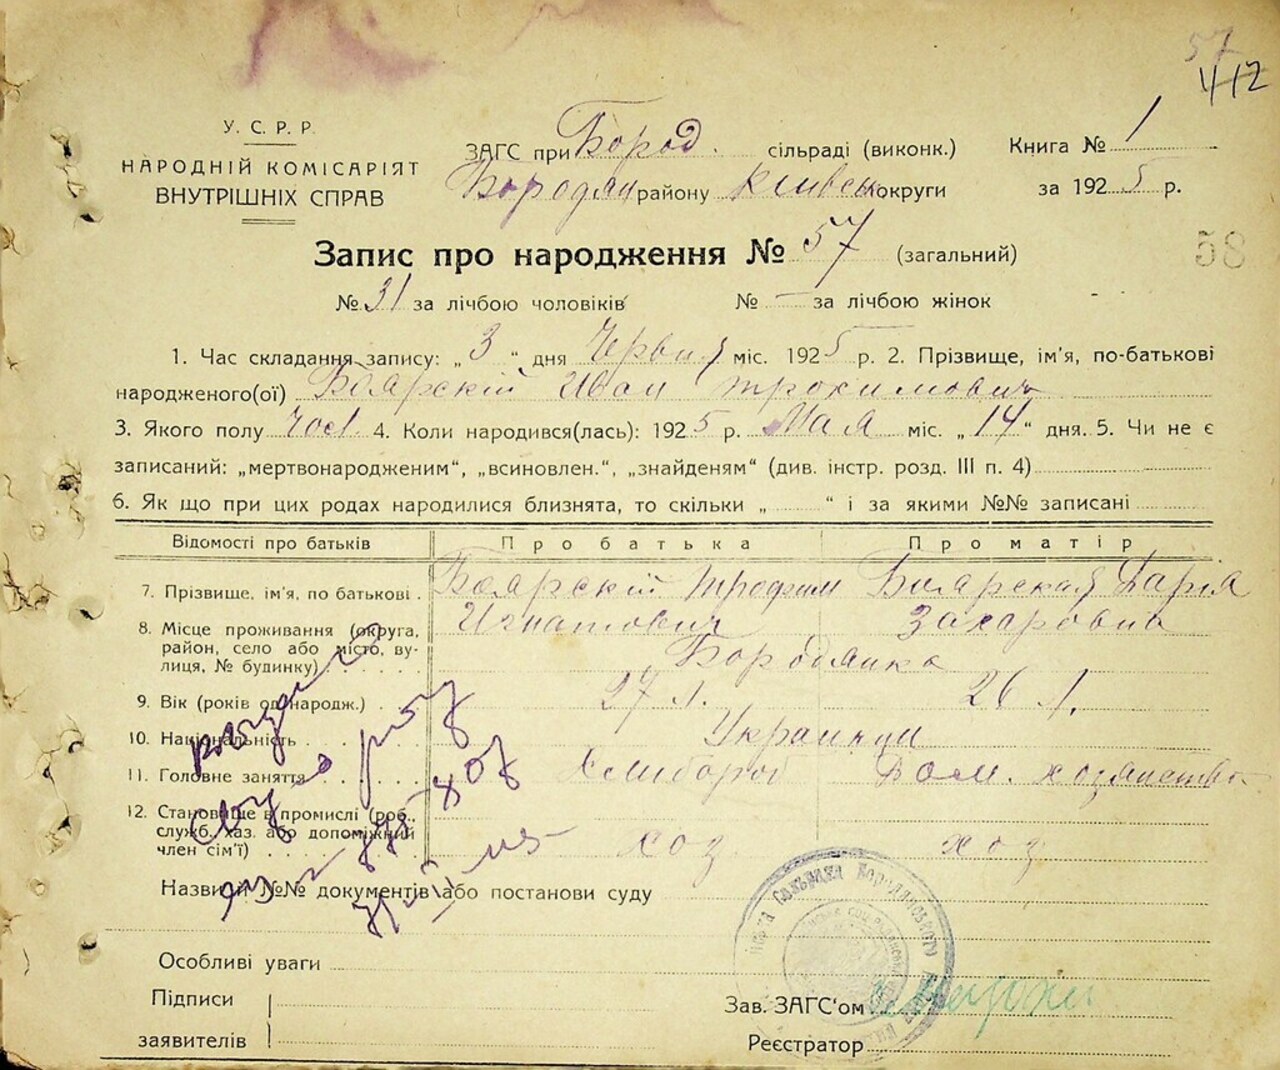 57
412
У. С. Р. Р.
НАРОДНІЙ КОМІСАРІЯТ
ВНУТРІШНІХ СПРАВ
ЗАГС при Бород. сільраді (виконк.)
Бородян району Київськ округи
Книга № 1
за 1925 р.
Запис про народження № 57 (загальний)
58
№ 31 за лічбою чоловіків № — за лічбою жінок
1. Час складання запису: „ 3 “ дня Червня міс. 1925 р. 2. Прізвище, ім'я, по-батькові
народженого(ої) Боярскій Иван Трохимович
3. Якого полу чол 4. Коли народився(лась): 1925 р. Мая міс. „ 14 “ дня. 5. Чи не є
записаний: „мертвонародженим“, „всиновлен.“, „знайденям“ (див. інстр. розд. III п. 4)
6. Як що при цих родах народилися близнята, то скільки „ “ і за якими №№ записані
Відомості про батьків Про батька Про матір
7. Прізвище, ім'я, по батькові . Боярскій Трофим Боярская Дарія
Игнатович Захаровна
8. Місце проживання (округа,
район, село або місто, ву-
лиця, № будинку) Бородянка
9. Вік (років од народж.) 27 л. 26 л.
10. Національність Украинци
11. Головне заняття Хлибороб Дом. хозяйство
12. Становище в промислі (роб.,
служб. хаз. або допоміжний
член сім'ї) хоз хоз
Назви й №№ документів або постанови суду
Особливі уваги
Підписи
заявителів
Зав. ЗАГС'ом
Реєстратор